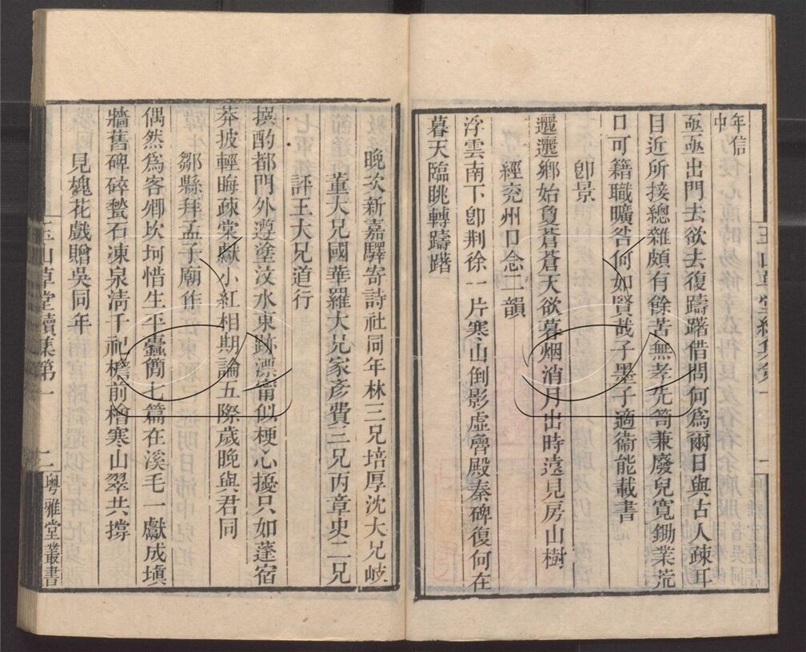 年信
中
亟亟出門去欲去復躊躇借問何為爾日與古人疎耳
目近所接總雜頗有餘苦無孝先笥兼廢兒寬鋤業荒
口可籍職曠咎何如賢哉子墨子適衞能載書
卽景
邐邐鄉始夐蒼蒼天欲暮烟消月出時遠見房山樹
經兖州口念二韻
浮雲南下卽荆徐一片寒山倒影虛魯殿秦碑復何在
暮天臨眺轉躊躇
晚次新嘉驛寄詩社同年林三兄培厚沈大兄岐
董大兄國華羅大兄家彥費三兄丙章史二兄
評王大兄道行
撰酌都門外遵塗汶水東跡漂甯似梗心擾只如蓬宿
莽披輕晦疎棠獻小紅相期論五際歲晚與君同
鄒縣拜孟子廟作
偶然為客卿坎坷惜生平蠹簡七篇在溪毛一獻成塡
牆舊碑碎甃石凍泉淸千祀檐前檜寒山翠共撐
見槐花戲贈吳同年
玉山草堂續集第一
二
粤雅堂叢書